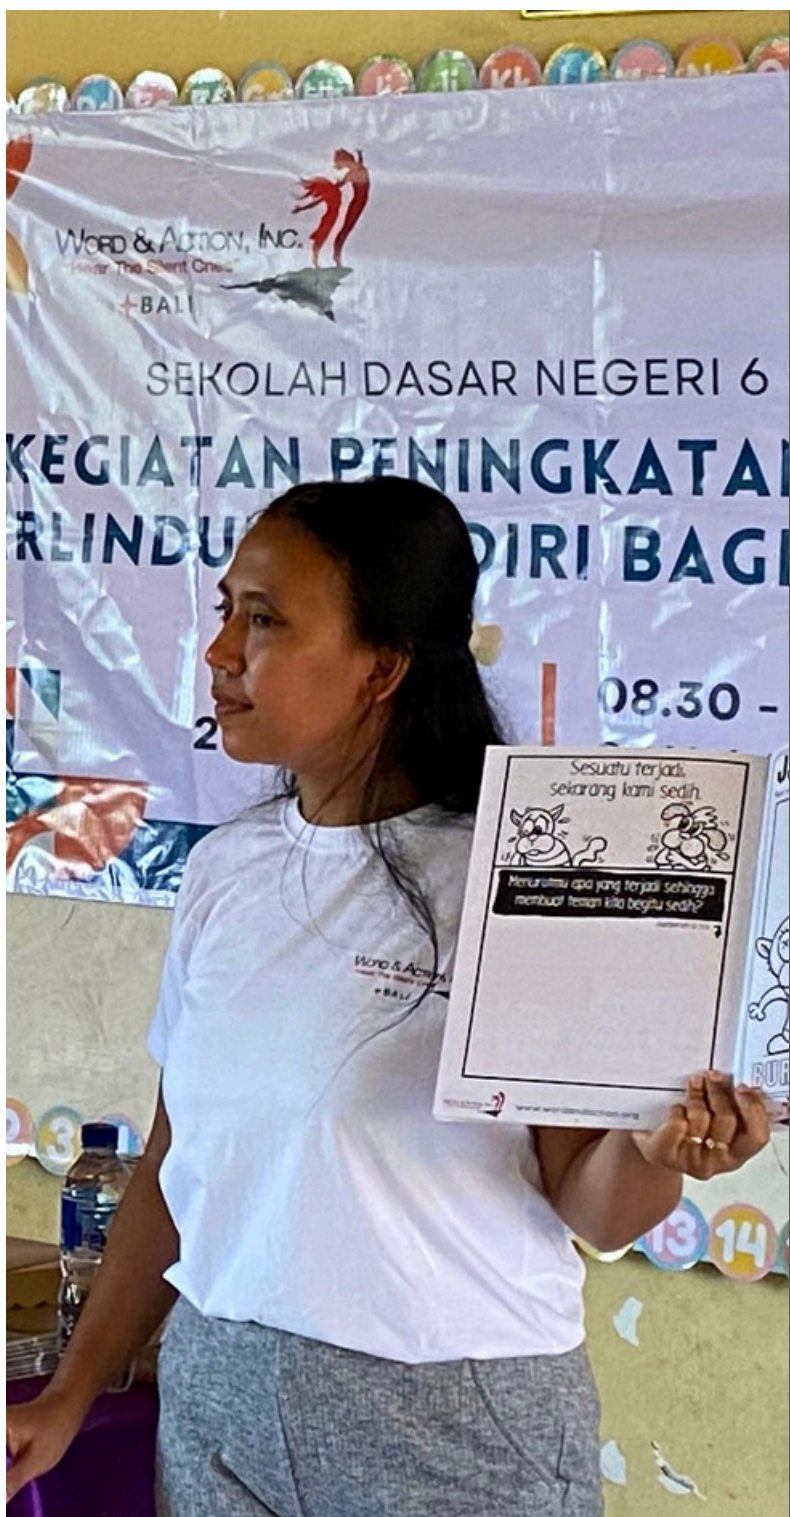 WORD & ACTION, INC.
"Hear The Silent Cries"
+BALI
SEKOLAH DASAR NEGERI 6
KEGIATAN PENINGKATAN
RLINDU DIRI BAGI
2
08.30 -
Sesuatu terjadi,
sekarang kami sedih.
Menurutmu apa yang terjadi sehingga
membuat teman kita begitu sedih?
7
www.wordandaction.org
BUR
WORD & ACTION
+BALI
3
13
14